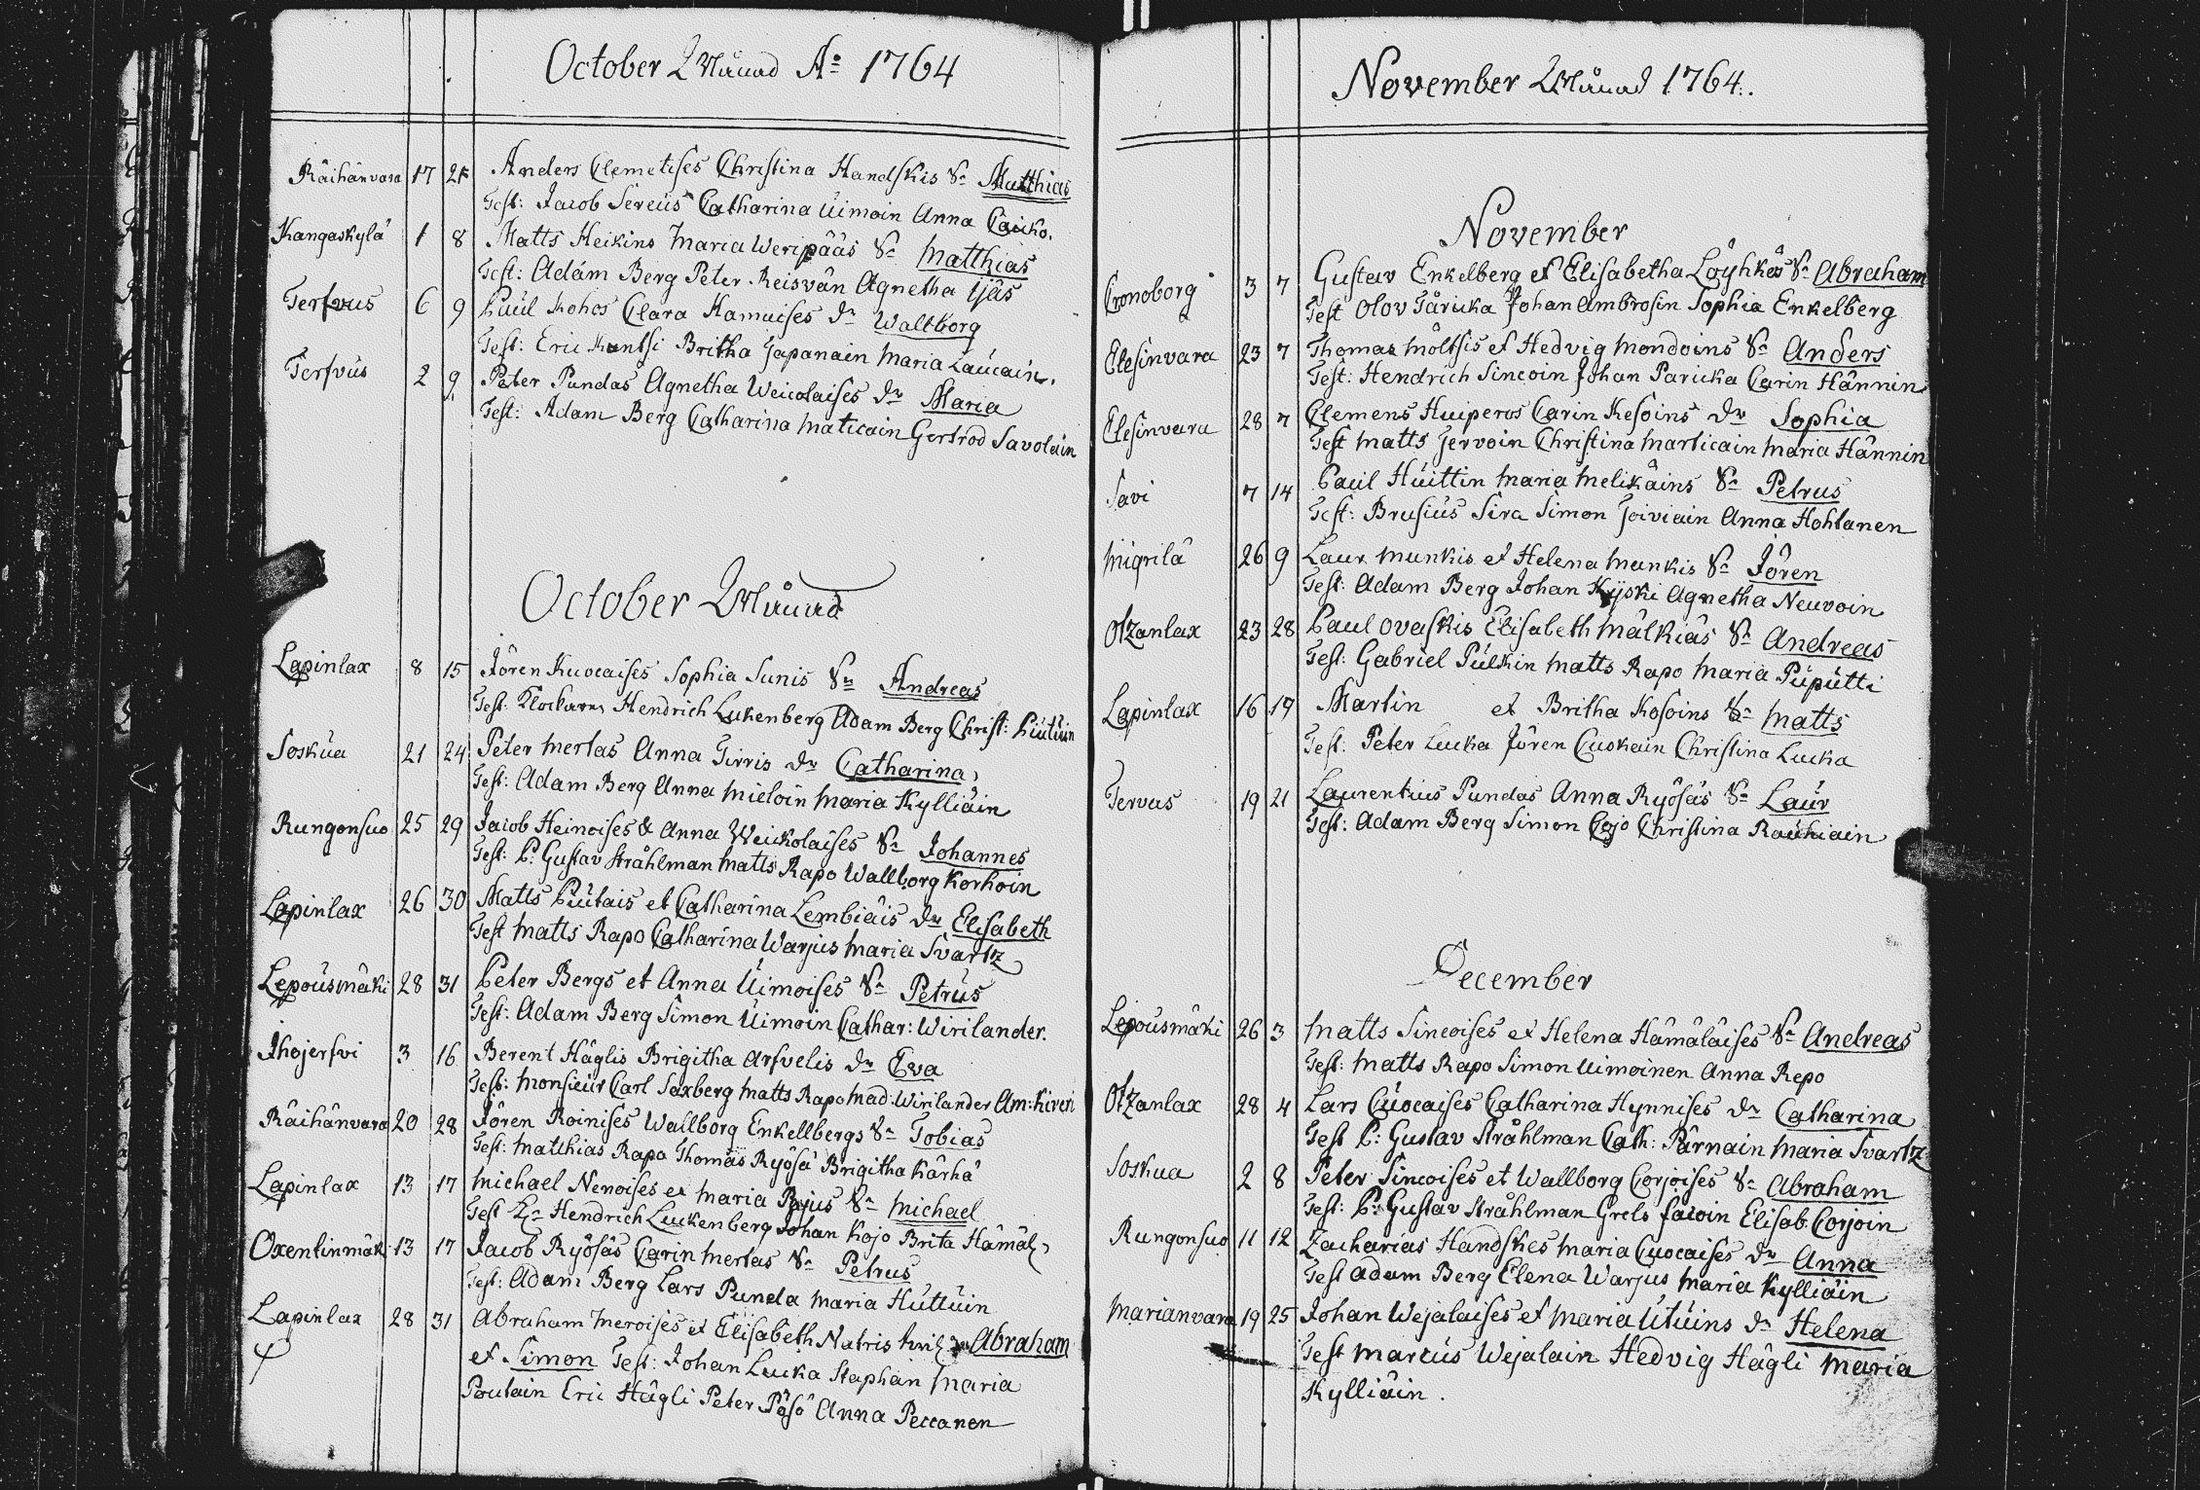 October Månad Aō 1764
Räihänvara 17 21 Anders Clemetises Christina Handskis Sn Matthias
Test: Jacob Sereüs Catharina Üimoin Anna Caiko.
Kangaskylä 1 8 Matts Heikins Maria Weripääs Sn Matthias
Test: Adam Berg Peter Reisvän Agnetha Ijäs
Terfvus 6 9 Paül Kohos Clara Hamuises dr Waltborg
Test: Eric Kuntsi Britha Japanain Maria Laucain.
Terfvüs 2 9 Peter Pundas Agnetha Weicolaises dr Maria
Test: Adam Berg Catharina Maticain Gertrod Savolain
October Månad
Lapinlax 8 15 Jören Kuocaises Sophia Sunis Sn Andreas
Test: Klockaren Hendrich Lukenberg Adam Berg Christ: Püütüin
Soskua 21 24 Peter Mertas Anna Tirris dr Catharina
Test: Adam Berg Anna Mieloin Maria Kylliäin
Rungonsuo 25 29 Jacob Heinoises & Anna Weickolaises Sn Johannes
Test: P: Gustav Stråhlman Matts Rapo Wallborg Korhoin
Lapinlax 26 30 Matts Püütais et Catharina Lembiäis dr Elisabeth
Test Matts Rapo Catharina Warjus Maria Svartz
Lepoüsmäki 28 31 Peter Bergs et Anna Üimoises Sn Petrüs
Test: Adam Berg Simon Üimoin Cathar: Wirilander.
Ihojerfvi 3 16 Berent Häglis Brigitha Arfvelis dr Eva
Test: Monsieür Carl Saxberg Matts Rapo Mad: Wirilander Am: Siven
Räihänvara 20 28 Jören Roinises Wallborg Enkellbergs Sn Tobias
Test: Matthias Rapo Thomas Ryösä Brigitha Kärhä
Lapinlax 13 17 Michael Nenoises et Maria Pajus Sn Michael
Test Hendrich Luckenberg Johan Kojo Brita Hämäl
Oxentinmäk 13 17 Jacob Ryösäs Carin Mertas Sn Petrus
Test: Adam Berg Lars Punda Maria Hüttüin
Lapinlax 28 31 Abraham Meroises et Elisabeth Natris Abraham
et Simon Test: Johan Lucka Staphan Maria
Poutain Eric Hägli Peter Päsö Anna Peccanen
November Månad 1764.
November
Cronoborg 3 7 Gustav Enkelberg et Elisabetha Löyhkös Sn Abraham
Test Olov Täricka Johan Ambrosin Sophia Enkelberg
Elesinvara 23 7 Thomas Möltsis et Hedvig Mondoins Sn Anders
Test: Hendrich Sincoin Johan Paricka Carin Hännin
Elesinvara 28 7 Clemens Huiperos Carin Kesoins dr Sophia
Test Matts Jervoin Christina Marticain Maria Hännin
Savi 7 14 Paul Hüittin Maria Melikäins Sn Petrus
Test: Brusiüs Sira Simon Toiviain Anna Hohtanen
Migrilä 26 9 Laur Munkis et Helena Munkis Sn Jören
Test: Adam Berg Johan Kyski Agnetha Neuvoin
Otzanlax 23 28 Paul Ovaskis Elisabeth Mälkiäs Sn Andreas
Test: Gabriel Pülkin Matts Rapo Maria Püpütti
Lapinlax 16 19 Martin et Britha Kosoins Sn Matts
Test: Peter Lucka Jören Cuokain Christina Lucka
Tervus 19 21 Laurentius Pundas Anna Ryösäs Sn Laür
Test: Adam Berg Simon Cojo Christina Rauhiain
December
Lepoüsmäki 26 3 Matts Sincoises et Helena Hämäläises Sn Andreas
Test: Matts Rapo Simon Uimoinen Anna Repo
Otzanlax 28 4 Lars Cüocaises Catharina Hynnises dr Catharina
Test P: Gustav Stråhlman Cath: Pärnäin Maria Svartz
Soskua 2 8 Peter Sincoises et Wallborg Corjoises Sn Abraham
Test: P: Gustav Stråhlman Grels Jacoin Elisab. Corjoin
Rungonsuo 11 12 Zacharias Handskes Maria Cuocaises dr Anna
Test Adam Berg Elena Warjus Maria Kylliäin
Marianvara 19 25 Johan Wejalaises et Maria Ütüins dr Helena
Test Marcüs Wejalain Hedvig Hägli Maria
Kylliäin.